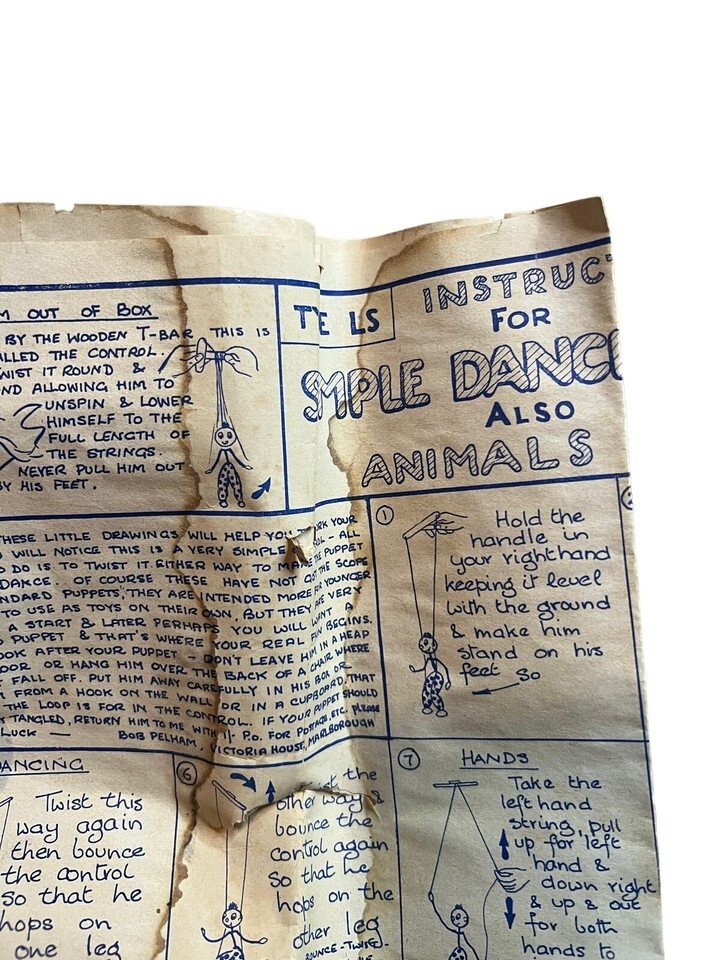 M OUT OF BOX
BY THE WOODEN T-BAR THIS IS
ALLED THE CONTROL.
WIST IT ROUND &
ND ALLOWING HIM TO
UNSPIN & LOWER
HIMSELF TO THE
FULL LENGTH OF
THE STRINGS.
NEVER PULL HIM OUT
BY HIS FEET.
TYE LS
INSTRUCT
FOR
SIMPLE DANC
ALSO
ANIMALS
THESE LITTLE DRAWINGS WILL HELP YOU WORK YOUR
WILL NOTICE THIS IS A VERY SIMPLE OL - ALL
DO IS TO TWIST IT EITHER WAY TO MAKE THE PUPPET
DANCE. OF COURSE THESE HAVE NOT GOT THE SCOPE
NDARD PUPPETS', THEY ARE INTENDED MORE FOR YOUNGER
TO USE AS TOYS ON THEIR OWN, BUT THEY ARE VERY
A START & LATER PERHAPS YOU WILL WANT A
PUPPET & THAT'S WHERE YOUR REAL FUN BEGINS.
OOK AFTER YOUR PUPPET - DON'T LEAVE HIM IN A HEAP
OOR OR HANG HIM OVER THE BACK OF A CHAIR WHERE
FALL OFF. PUT HIM AWAY CAREFULLY IN HIS BOX OR
FROM A HOOK ON THE WALL OR IN A CUPBOARD, THAT
THE LOOP IS FOR IN THE CONTROL. IF YOUR PUPPET SHOULD
TANGLED, RETURN HIM TO ME WITH 1/- P.O. FOR POSTAGE, ETC. PLEASE
LUCK — BOB PELHAM, VICTORIA HOUSE, MARLBOROUGH
1
Hold the
handle in
your right hand
keeping it level
with the ground
& make him
stand on his
feet
So
ANCING
Twist this
way again
then bounce
the control
so that he
hops on
one leg
6
the
other way &
bounce the
control again
so that he
hops on the
other leg
BOUNCE-TWIST-
7 HANDS
Take the
left hand
string, pull
up for left
hand &
down right
& up & out
for both
hands to